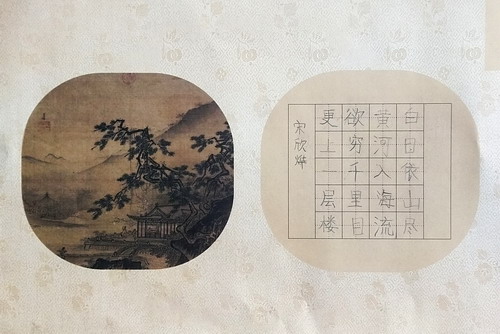 白日依山尽
黄河入海流
欲穷千里目
更上一层楼
宋欣烨